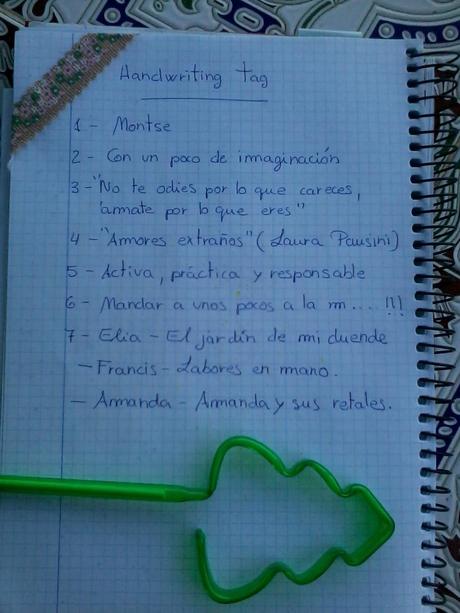 Handwriting tag
1 - Montse
2 - Con un poco de immaginación
3 - "No te odies por lo que careces,
ámate por lo que eres"
4 - "Amores extraños" (Laura Pausini)
5 - Activa, práctica y responsable
6 - Mandar a unos pocos a la m... !!!
7 - Elia - El jardín de mi duende
- Francis - Labores en mano.
- Amanda - Amanda y sus retales.